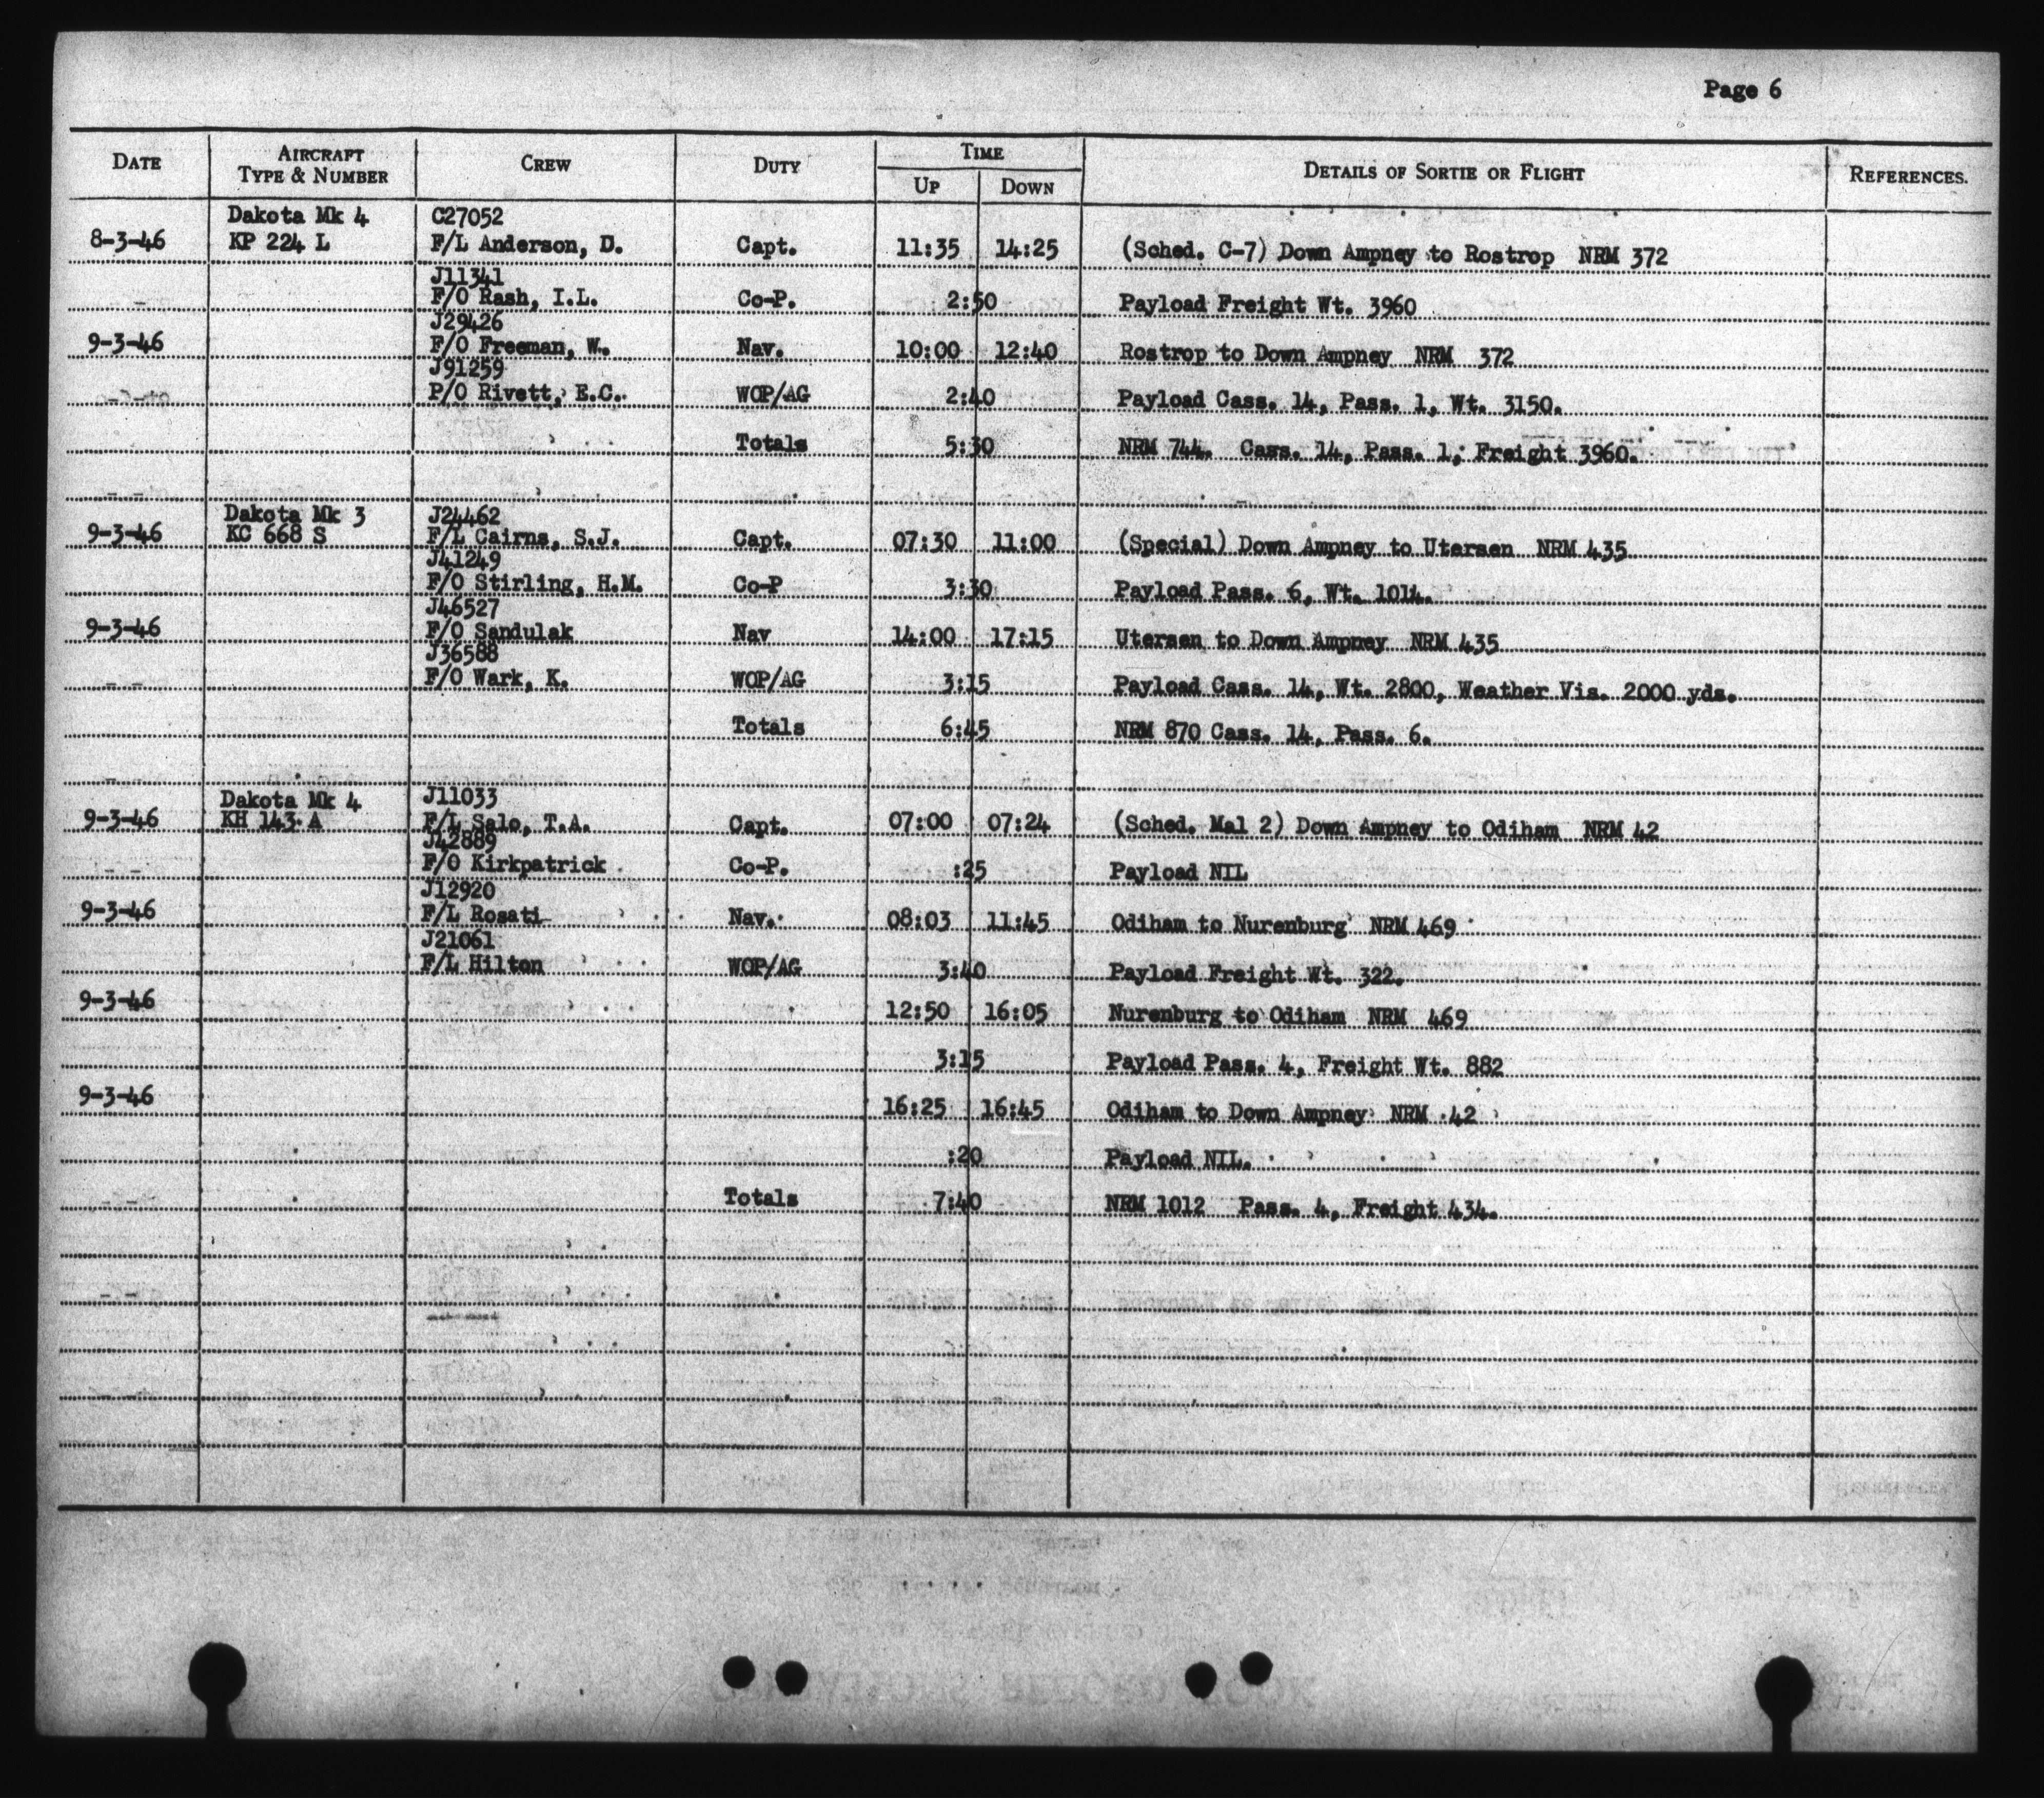 Page 6
DATE AIRCRAFT TYPE & NUMBER CREW DUTY TIME UP DOWN DETAILS OF SORTIE OR FLIGHT REFERENCES.
Dakota Mk 4 C27052
8-3-46 KP 224 L F/L Anderson, D. Capt. 11:35 14:25 (Sched. C-7) Down Ampney to Rostrop NRM 372
J11341
F/O Rash, I.L. Co-P. 2:50 Payload Freight Wt. 3960
J29426
9-3-46 F/O Freeman, W. Nav. 10:00 12:40 Rostrop to Down Ampney NRM 372
J91259
P/O Rivett, E.C. WOP/AG 2:40 Payload Cass. 14, Pass. 1, Wt. 3150.
Totals 5:30 NRM 744. Cass. 14, Pass. 1, Freight 3960.
Dakota Mk 3 J24462
9-3-46 KC 668 S F/L Cairns, S.J. Capt. 07:30 11:00 (Special) Down Ampney to Utersen NRM 435
J41249
F/O Stirling, H.M. Co-P 3:30 Payload Pass. 6, Wt. 1014.
J46527
9-3-46 F/O Sandulak Nav 14:00 17:15 Utersen to Down Ampney NRM 435
J36588
F/O Wark, K. WOP/AG 3:15 Payload Cass. 14, Wt. 2800, Weather Vis. 2000 yds.
Totals 6:45 NRM 870 Cass. 14, Pass. 6.
Dakota Mk 4 J11033
9-3-46 KH 143 A F/L Salo, T.A. Capt. 07:00 07:24 (Sched. Mal 2) Down Ampney to Odiham NRM 42
J42889
F/O Kirkpatrick Co-P. :25 Payload NIL
J12920
9-3-46 F/L Rosati Nav. 08:03 11:45 Odiham to Nurenburg NRM 469
J21061
F/L Hilton WOP/AG 3:40 Payload Freight Wt. 322.
9-3-46 12:50 16:05 Nurenburg to Odiham NRM 469
3:15 Payload Pass. 4, Freight Wt. 882
9-3-46 16:25 16:45 Odiham to Down Ampney NRM 42
:20 Payload NIL.
Totals 7:40 NRM 1012 Pass. 4, Freight 434.